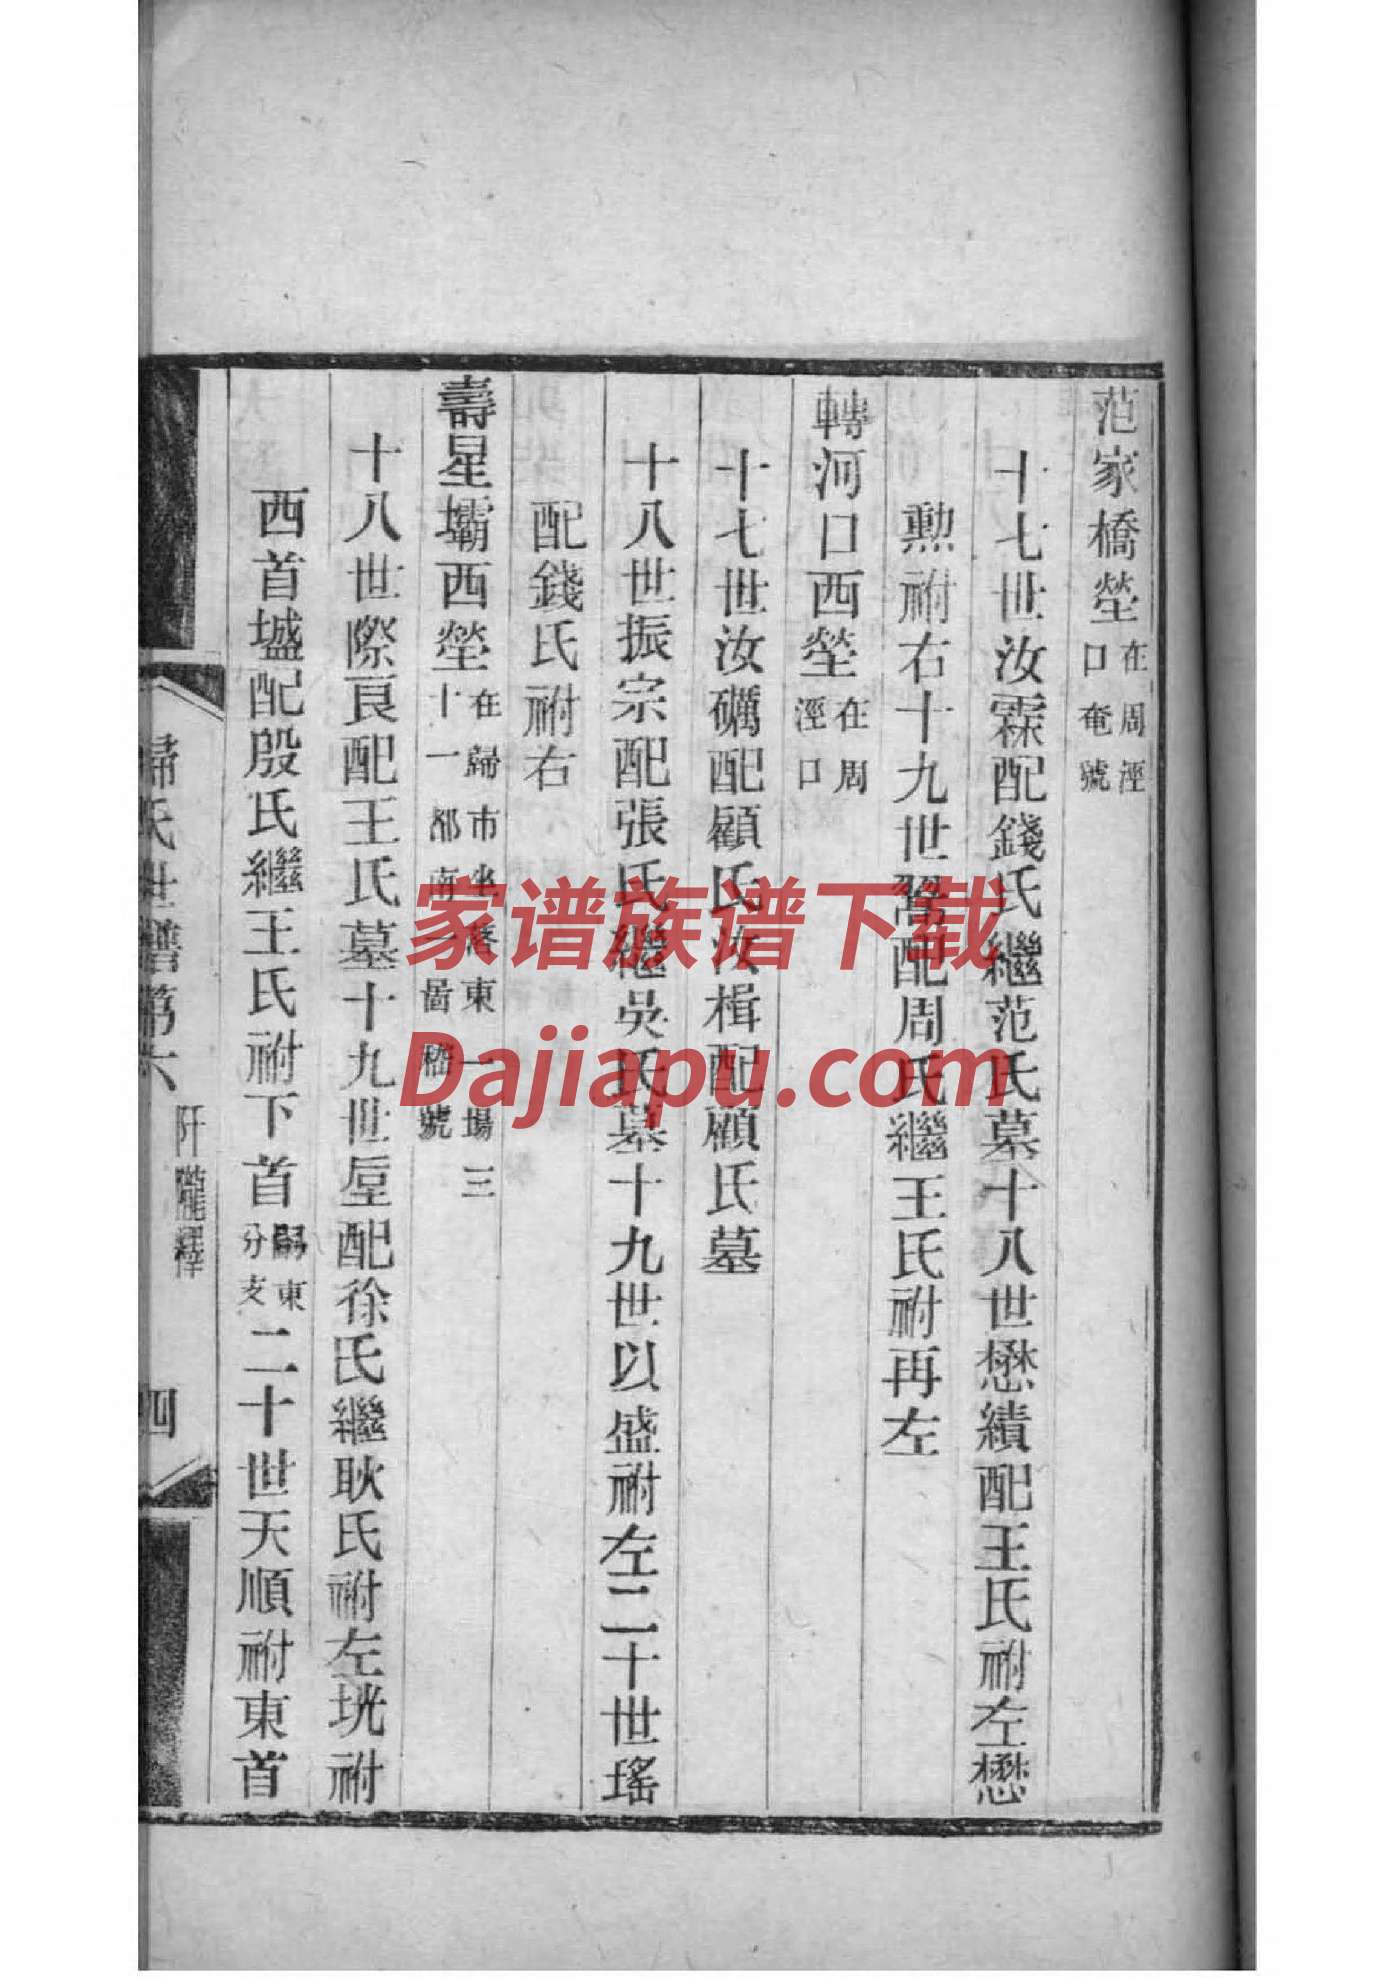 范家橋塋在周涇口奄號
十七世汝霖配錢氏繼范氏墓十八世懋績配王氏祔左懋
勲祔右十九世配周氏繼王氏祔再左
轉河口西塋在周涇口
十七世汝礪配顧氏汝楫配顧氏墓
十八世振宗配張氏繼吳氏墓十九世以盛祔左二十世瑤
配錢氏祔右
壽星壩西塋在歸市東一場三十一都南啚號
十八世際良配王氏墓十九世垕配徐氏繼耿氏祔左垙祔
西首墭配殷氏繼王氏祔下首嗣東分支二十世天順祔東首
歸氏世譜第六
阡隴釋
四
家谱族谱下载
Dajiapu.com